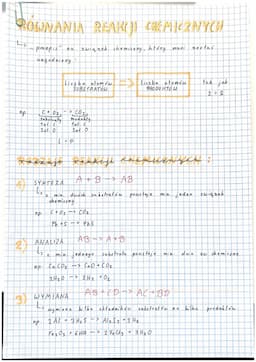 RÓWNANIA REAKCJI CHEMICZNYCH
"przepis" na związek chemiczny, który musi zostać
uzgodniony
liczba atomów SUBSTRATÓW => liczba atomów PRODUKTÓW tak jak
L = P
np. C + O₂ → CO₂
substraty produkty
1at. C 1at. C
2at. O 2at. O
L = P
Rodzaje reakcji chemicznych :
1) SYNTEZA A + B → AB
z dwóch substratów powstaje jeden związek
chemiczny
np. C + O₂ → CO₂
Pb + S → PbS
2) ANALIZA AB → A + B
z jednego substratu powstaje dwa zw. chemiczne
np. CaCO₃ → CaO + CO₂
2H₂O → 2H₂ + O₂
3) WYMIANA AB + CD → AC + BD
wymiana kilku składników substratów na kilka produktów
np. 2Al + 3H₂S → Al₂S₃ + 3H₂
Fe₂O₃ + 6HCl → 2FeCl₃ + 3H₂O